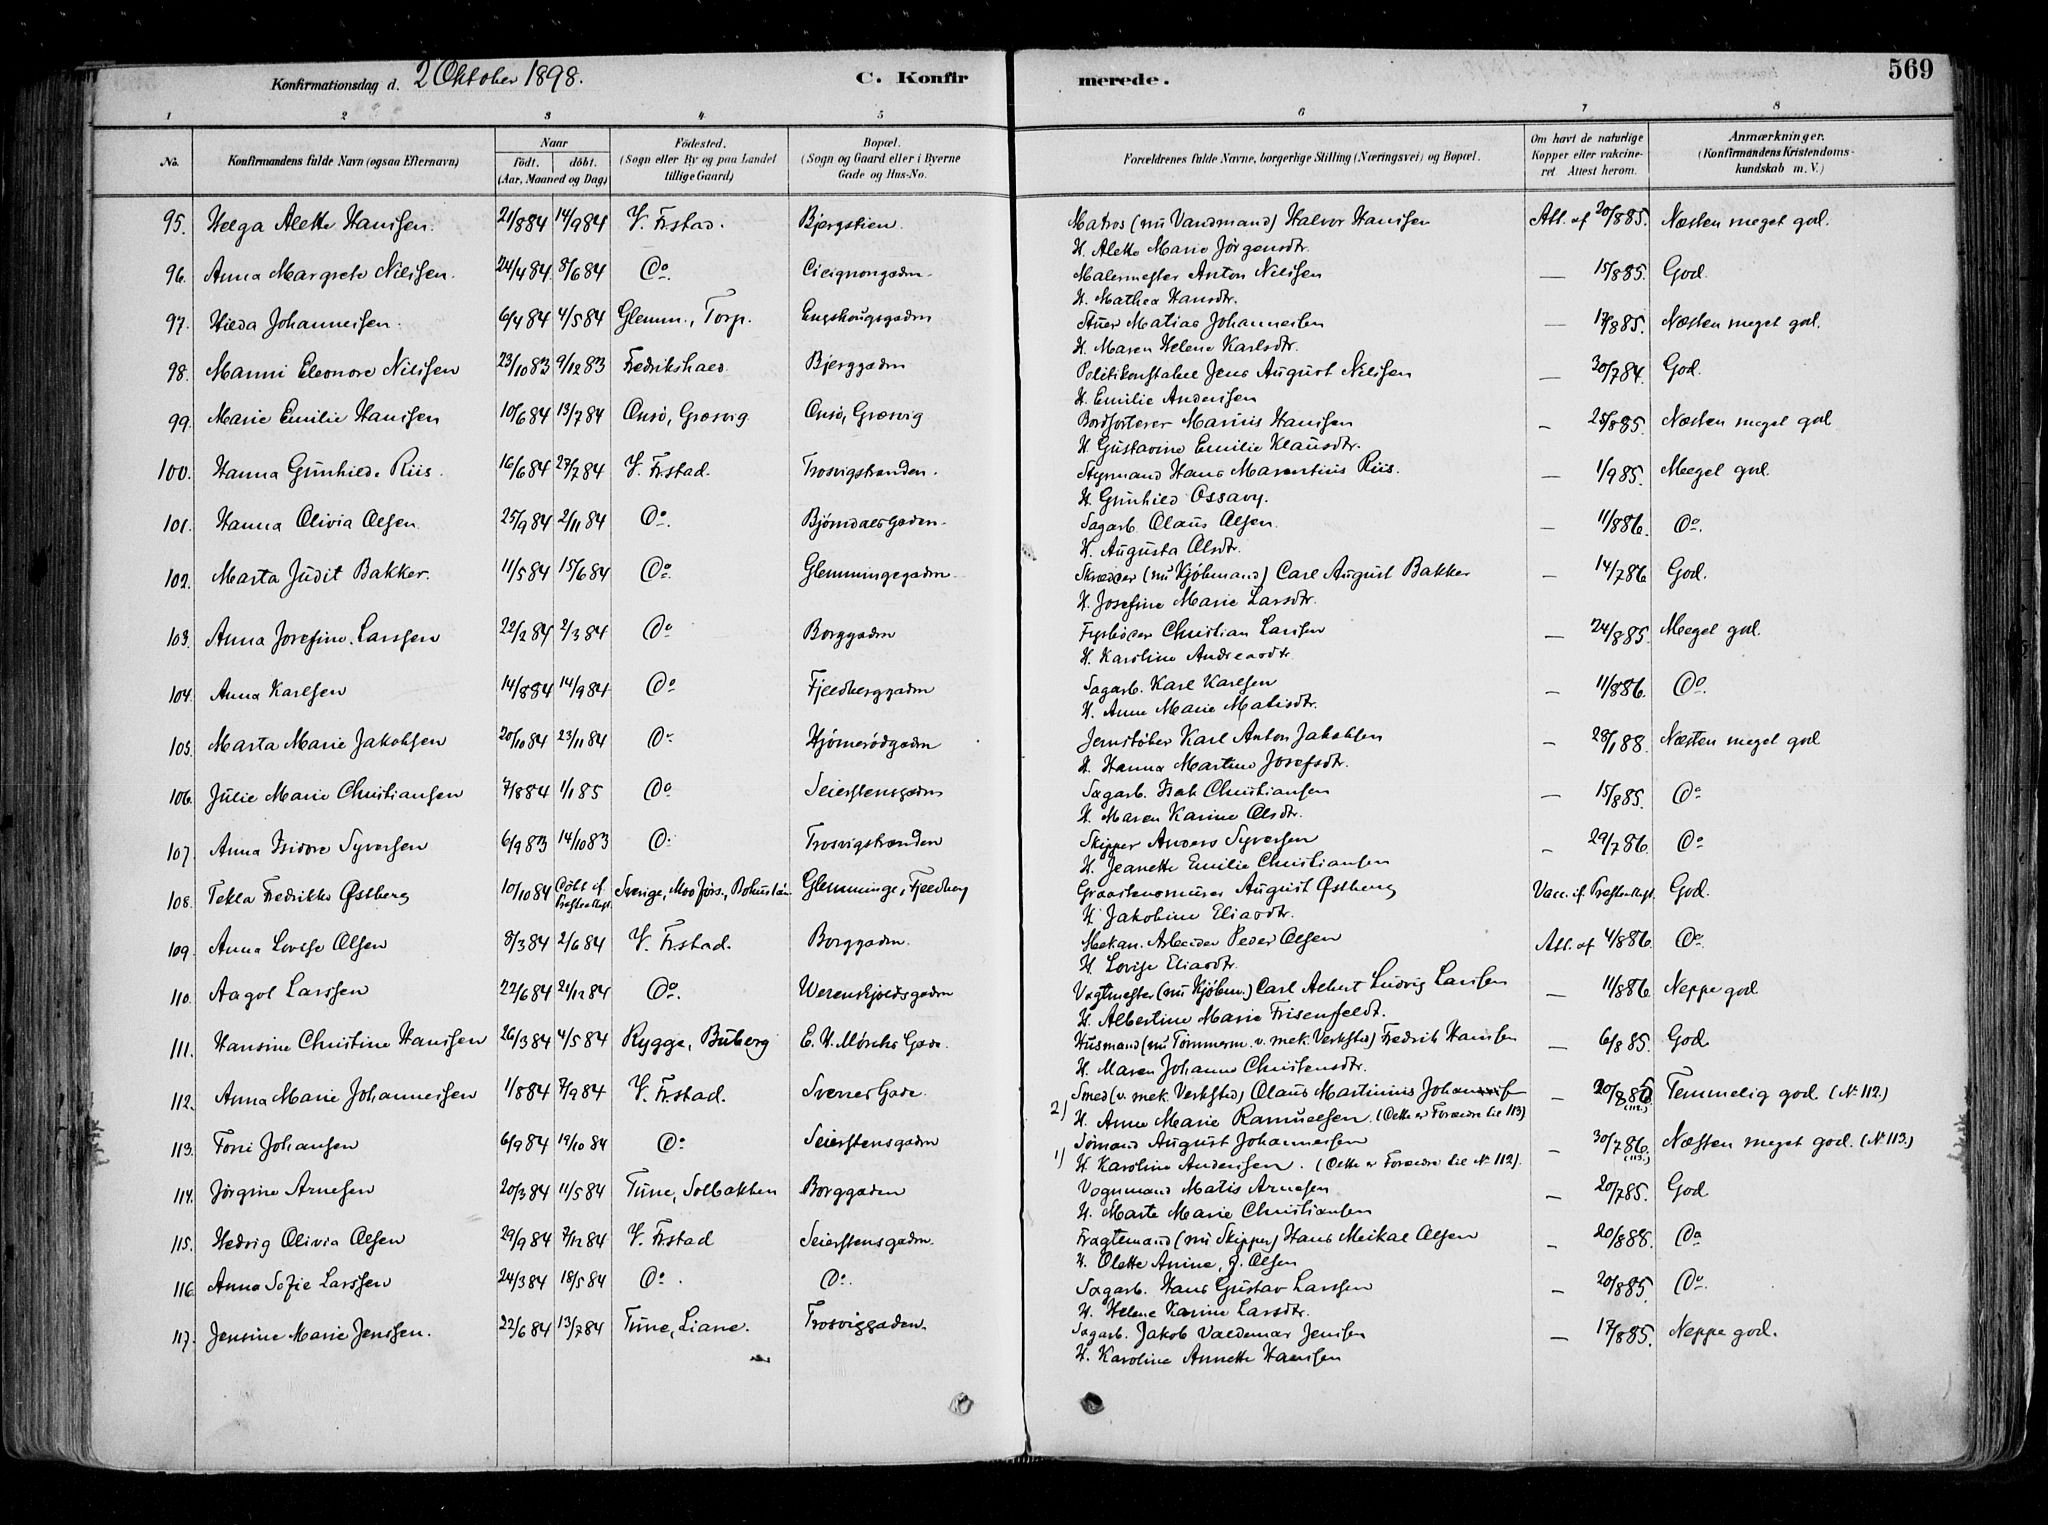 Konfirmationsdag d. 2 Oktober 1898. C. Konfirmerede. 569
1 2 3 4 5 6 7 8
No. Konfirmandens fulde Navn (ogsaa Efternavn) Naar födt. döbt. (Aar, Maaned og Dag) Födested. (Sogn eller By og paa Landet tillige Gaard) Bopæl. (Sogn og Gaard eller i Byerne Gade og Hus-No. Forældrenes fulde Navne, borgerlige Stilling (Næringsvei) og Bopæl. Om havt de naturlige Kopper eller vakcineret Attest herom. Anmærkninger. (Konfirmandens Kristendomskundskab m. V.)
95. Helga Alette Hanssen. 21/8 84 14/9 84 V. Frstad. Bjergstien. Matros (nu Vandmand) Halvor Hanssen Att. af 20/8 85. Næsten meget god.
H. Alette Marie Jørgensdtr.
96. Anna Margrete Nilssen. 24/4 84 8/6 84 Do. Cicignongadn. Malermester Anton Nilssen — 15/8 85. God.
H. Mathea Hansdtr.
97. Hilda Johannessen. 6/4 84 4/5 84 Glemm., Torp. Engshougsgadn Stuer Matias Johannessen — 17/8 85. Næsten meget god.
H. Maren Helene Karlsdtr.
98. Manni Eleonore Nilssen 23/10 83 9/12 83 Fredrikshald Bjerggadn Politikonstabel Jens August Nilssen — 30/7 84. God.
H. Emilie Anderssen
99. Marie Emilie Hanssen 10/6 84 13/7 84 Onsö, Græsvig Onsö, Græsvig Bordsorterer Marius Hanssen — 25/8 85. Næsten meget god
H. Gustavine Emilie Klausdtr.
100. Hanna Gunhilde Riis. 16/6 84 27/7 84 V. Frstad. Trosvigstranden. Styrmand Hans Marentius Riis. — 1/9 85. Meget god.
H. Gunhild Ossavy.
101. Hanna Olivia Olsen 25/9 84 2/11 84 Do. Bjørndalsgaden. Sagarb. Olaus Olsen. — 11/8 86. Do.
H. Augusta Olsdtr.
102. Marta Judit Bakker. 11/5 84 15/6 84 Do Glemmingegadn Skrædder (nu Kjöbmand) Carl August Bakker — 14/7 86 God.
H. Josefine Marie Larsdtr.
103. Anna Josefine Larssen 22/2 84 2/3 84 Do Borggadn Fyrböder Christian Larssen — 24/8 85. Meget god.
H. Karoline Andreasdtr
104. Anna Karlsen 14/8 84 14/9 84 Do Fjeldberggadn Sagarb. Karl Karlsen — 11/8 86. Do
H. Anne Marie Matisdtr.
105. Marta Marie Jakobsen 20/10 84 23/11 84 Do Hjörnerödgadn Jernstöber Karl Anton Jakobsen — 28/1 88. Næsten meget god
H. Hanna Martine Josefsdtr.
106. Julie Marie Christiansen 7/8 84 1/1 85 Do Seierstensgadn Sagarb. Isak Christiansen — 15/8 85. Do
H. Maren Karine Olsdtr.
107. Anna Isidore Syversen 6/9 83 14/10 83 Do Trosvigstranden Skipper Anders Syversen — 29/7 86. Do
H. Jeanette Emilie Christiansen
108. Tekla Fredrikke Østberg 10/10 84 Döbt if. Præsteattst. Sverige, Mo, Bohuslän Glemminge, Fjeldberg Graastensmurer August Østberg Vacc. if. Præsteattst. God.
H. Jakobine Eliasdtr.
109. Anna Lovise Olsen 8/3 84 2/6 84 V. Frstad. Borggadn. Mekan. Arbeider Peder Olsen Att. af 4/8 86. Do
H. Lovise Eliasdtr.
110. Aagot Larssen 22/6 84 21/12 84 Do. Werenskjoldsgadn Vagtmester (nu Kjöbm.) Carl Albert Ludvig Larssen — 11/8 86 Neppe god
H. Albertine Marie Frisenfeldt.
111. Hansine Christine Hanssen 26/3 84 4/5 84 Rygge, Buberg E. H. Mörchs Gade. Husmand (nu Tömmerm. v. mek. Verksted) Fredrik Hanssen — 6/8 85. God
H. Maren Johanne Christensdtr.
112. Anna Marie Johannessen 1/8 84 7/9 84 V. Frstad. Sverres Gade. Smed (v. mek. Verksted) Olaus Martinius Johannesf — 20/8 85 (112.) Temmelig god. (No 112.)
2) H. Anne Marie Ramuelsen. (Dette er Forældre til 113)
113. Torri Johansen 6/9 84 19/10 84 Do Seierstensgadn Sömand August Johannessen — 30/7 86. (113.) Næsten meget god. (No 113.)
1) H. Karoline Anderssen. (Dette er Forældre til No 112).
114. Jørgine Arnesen 20/3 84 11/5 84 Tune, Solbakken Borggaden Vognmand Matis Arnesen — 20/7 85. God
H. Marte Marie Christiansen
115. Hedvig Olivia Olsen 29/9 84 7/12 84 V. Frstad Seierstensgadn. Fragtemand (nu Skipper) Hans Meikal Olsen — 20/8 88. Do
H. Olette Anine, f. Olsen
116. Anna Sofie Larssen 24/3 84 18/5 84 Do. Do. Sagarb. Hans Gustav Larssen — 20/8 85. Do.
H. Helene Karine Larsdtr.
117. Jensine Marie Jenssen. 22/6 84 13/7 84 Tune, Liane. Trosviggaden. Sagarb. Jakob Valdemar Jenssen — 17/8 85. Neppe god.
H. Karoline Annette Hanssen